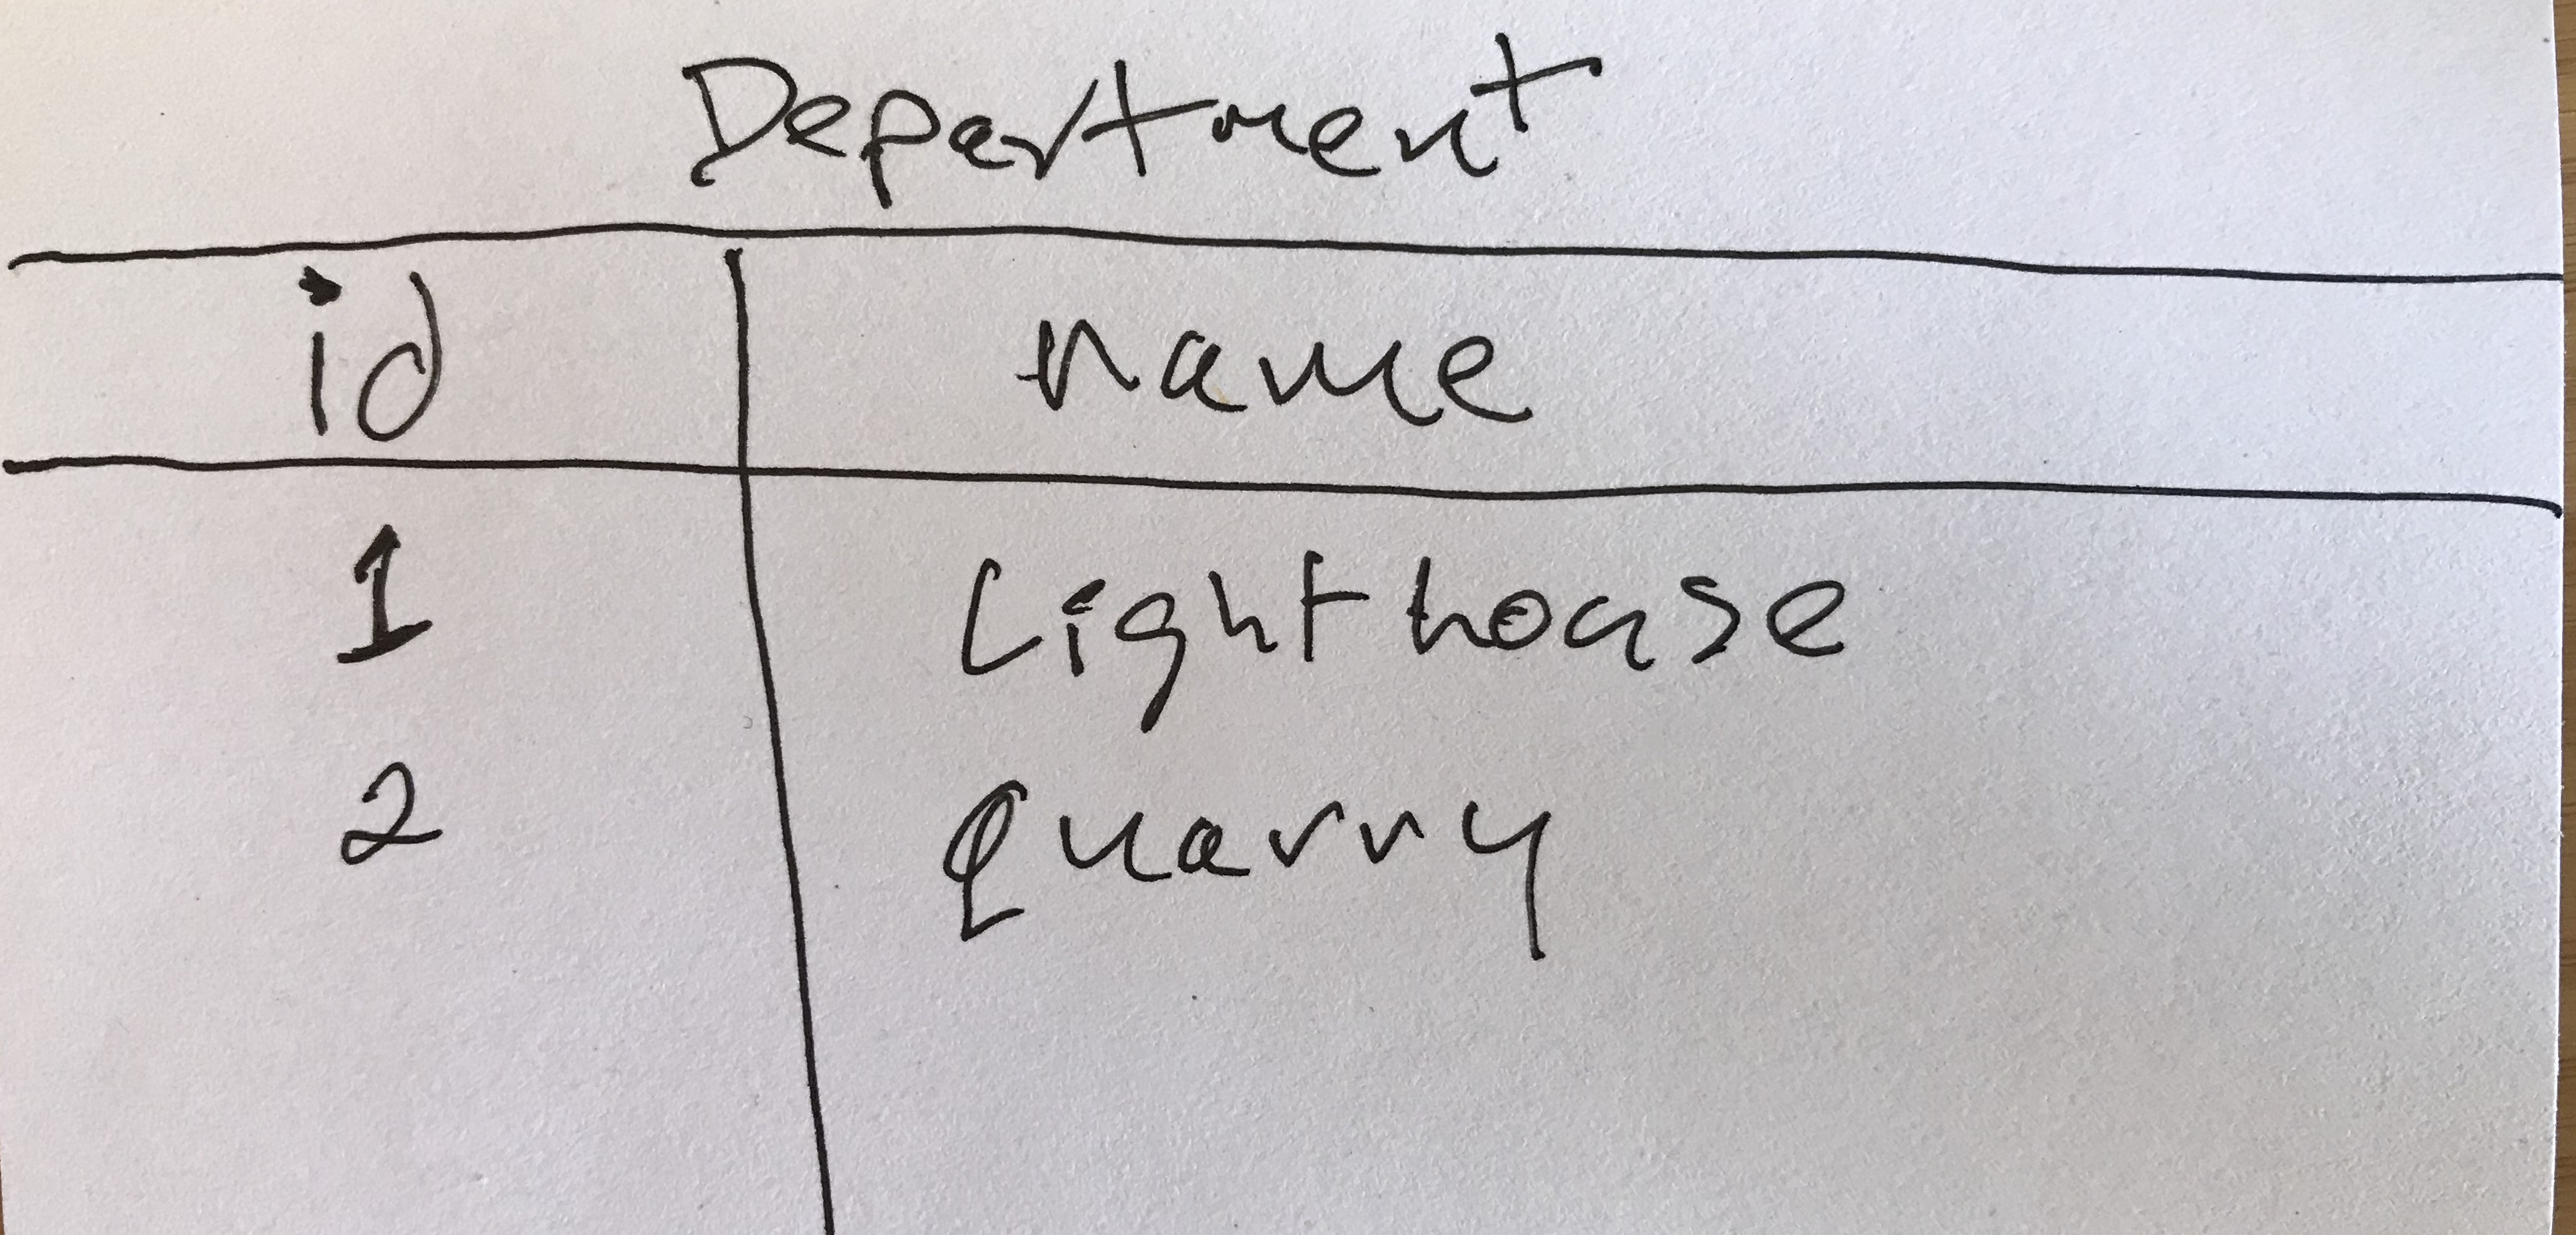 Department
id name
1 Lighthouse
2 Quarry